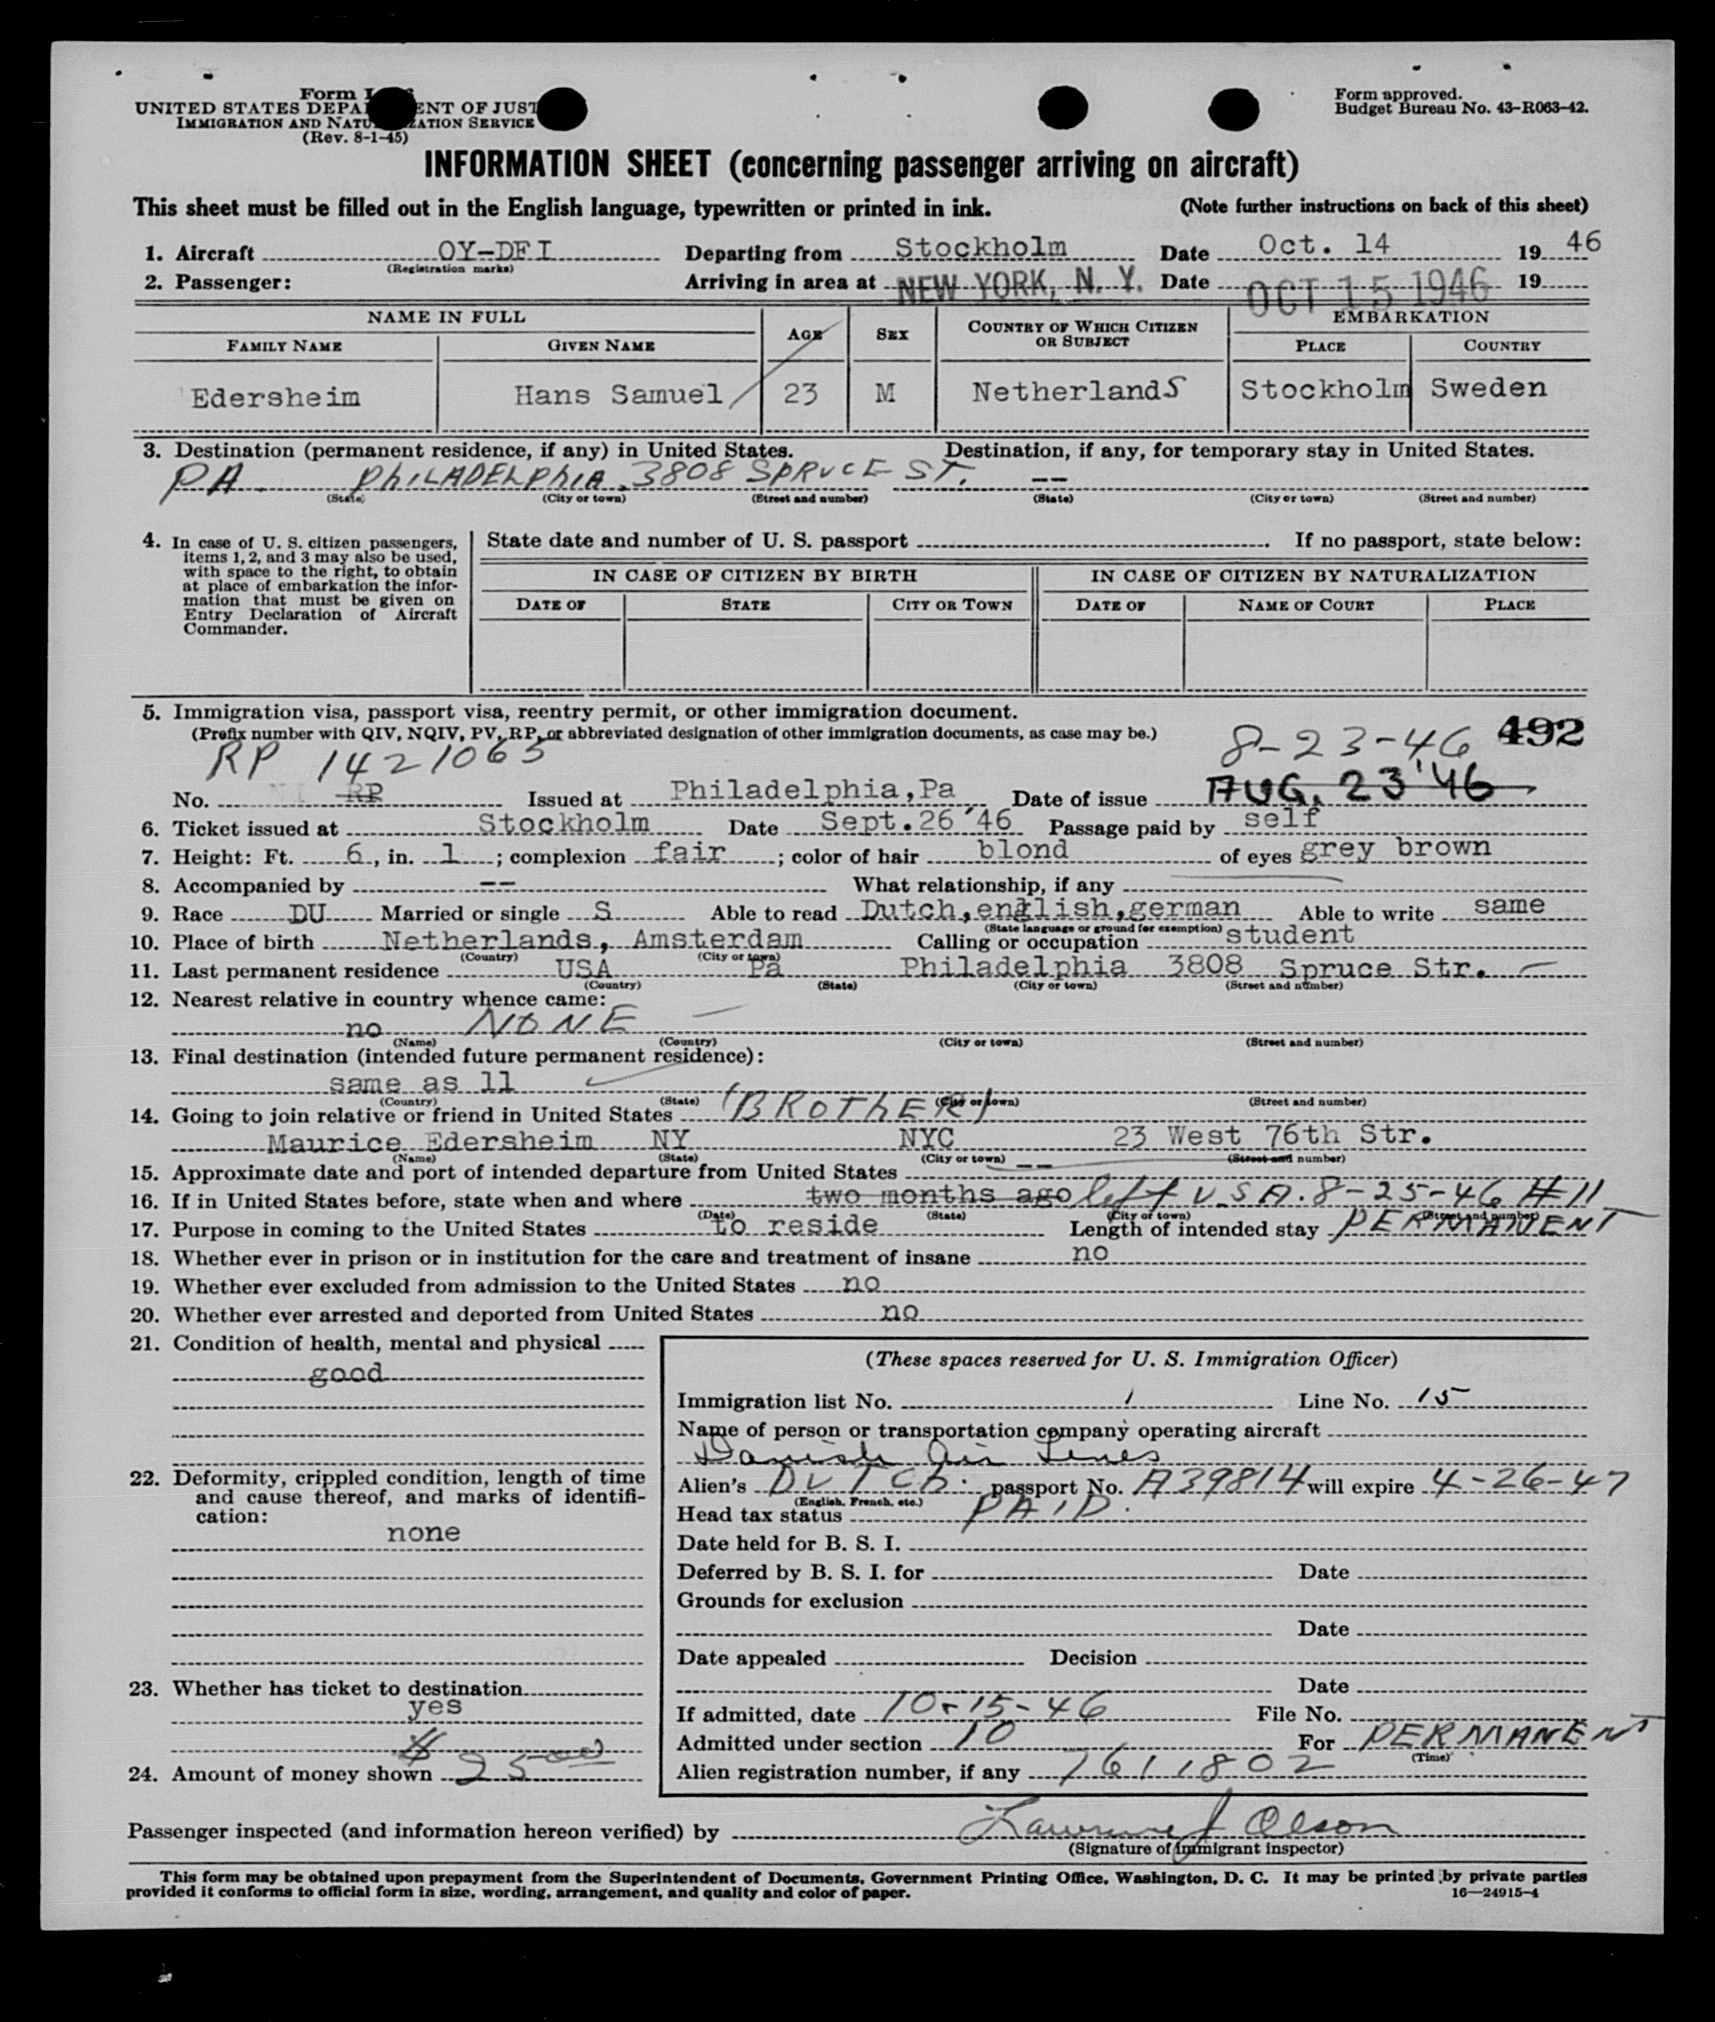 Form
UNITED STATES DEPA ENT OF JUST
IMMIGRATION AND NATU ZATION SERVICE
(Rev. 8-1-45)
Form approved.
Budget Bureau No. 43-R063-42.
INFORMATION SHEET (concerning passenger arriving on aircraft)
This sheet must be filled out in the English language, typewritten or printed in ink. (Note further instructions on back of this sheet)
1. Aircraft OY-DFI Departing from Stockholm Date Oct. 14 19 46
(Registration marks)
2. Passenger: Arriving in area at NEW YORK, N. Y. Date OCT 15 1946 19
NAME IN FULL AGE SEX COUNTRY OF WHICH CITIZEN OR SUBJECT EMBARKATION
FAMILY NAME GIVEN NAME PLACE COUNTRY
Edersheim Hans Samuel 23 M Netherlands Stockholm Sweden
3. Destination (permanent residence, if any) in United States. Destination, if any, for temporary stay in United States.
PA. PhILADELPhIA 3808 SPRUCE ST. --
(State) (City or town) (Street and number) (State) (City or town) (Street and number)
4. In case of U. S. citizen passengers, items 1, 2, and 3 may also be used, with space to the right, to obtain at place of embarkation the information that must be given on Entry Declaration of Aircraft Commander.
State date and number of U. S. passport If no passport, state below:
IN CASE OF CITIZEN BY BIRTH IN CASE OF CITIZEN BY NATURALIZATION
DATE OF STATE CITY OR TOWN DATE OF NAME OF COURT PLACE
5. Immigration visa, passport visa, reentry permit, or other immigration document.
(Prefix number with QIV, NQIV, PV, RP, or abbreviated designation of other immigration documents, as case may be.)
RP 1421065 8-23-46 492
No. RP Issued at Philadelphia,Pa Date of issue AUG. 23 '46
6. Ticket issued at Stockholm Date Sept.26 '46 Passage paid by self
7. Height: Ft. 6, in. 1; complexion fair; color of hair blond of eyes grey brown
8. Accompanied by -- What relationship, if any
9. Race DU Married or single S Able to read Dutch,english,german Able to write same
(State language or ground for exemption)
10. Place of birth Netherlands, Amsterdam Calling or occupation student
(Country) (City or town)
11. Last permanent residence USA Pa Philadelphia 3808 Spruce Str.
(Country) (State) (City or town) (Street and number)
12. Nearest relative in country whence came:
no NONE
(Name) (Country) (City or town) (Street and number)
13. Final destination (intended future permanent residence):
same as 11
(Country) (State) (City or town) (Street and number)
14. Going to join relative or friend in United States (BROTHER)
Maurice Edersheim NY NYC 23 West 76th Str.
(Name) (State) (City or town) (Street and number)
15. Approximate date and port of intended departure from United States --
16. If in United States before, state when and where two months ago left U.S.A. 8-25-46 #11
(Date) (State) (City or town) (Street and number)
17. Purpose in coming to the United States to reside Length of intended stay PERMANENT
18. Whether ever in prison or in institution for the care and treatment of insane no
19. Whether ever excluded from admission to the United States no
20. Whether ever arrested and deported from United States no
21. Condition of health, mental and physical
good
22. Deformity, crippled condition, length of time and cause thereof, and marks of identification:
none
23. Whether has ticket to destination
yes
24. Amount of money shown $ 25.00
(These spaces reserved for U. S. Immigration Officer)
Immigration list No. 1 Line No. 15
Name of person or transportation company operating aircraft
Danish Air Lines
Alien's DUTCh. passport No. A39814 will expire 4-26-47
(English, French, etc.)
Head tax status PAID.
Date held for B. S. I.
Deferred by B. S. I. for Date
Grounds for exclusion
Date
Date appealed Decision
Date
If admitted, date 10-15-46 File No.
Admitted under section 10 For PERMANENT
(Time)
Alien registration number, if any 7611802
Passenger inspected (and information hereon verified) by Lawrence J Olson
(Signature of immigrant inspector)
This form may be obtained upon prepayment from the Superintendent of Documents, Government Printing Office, Washington, D. C. It may be printed by private parties
provided it conforms to official form in size, wording, arrangement, and quality and color of paper. 16—24915-4